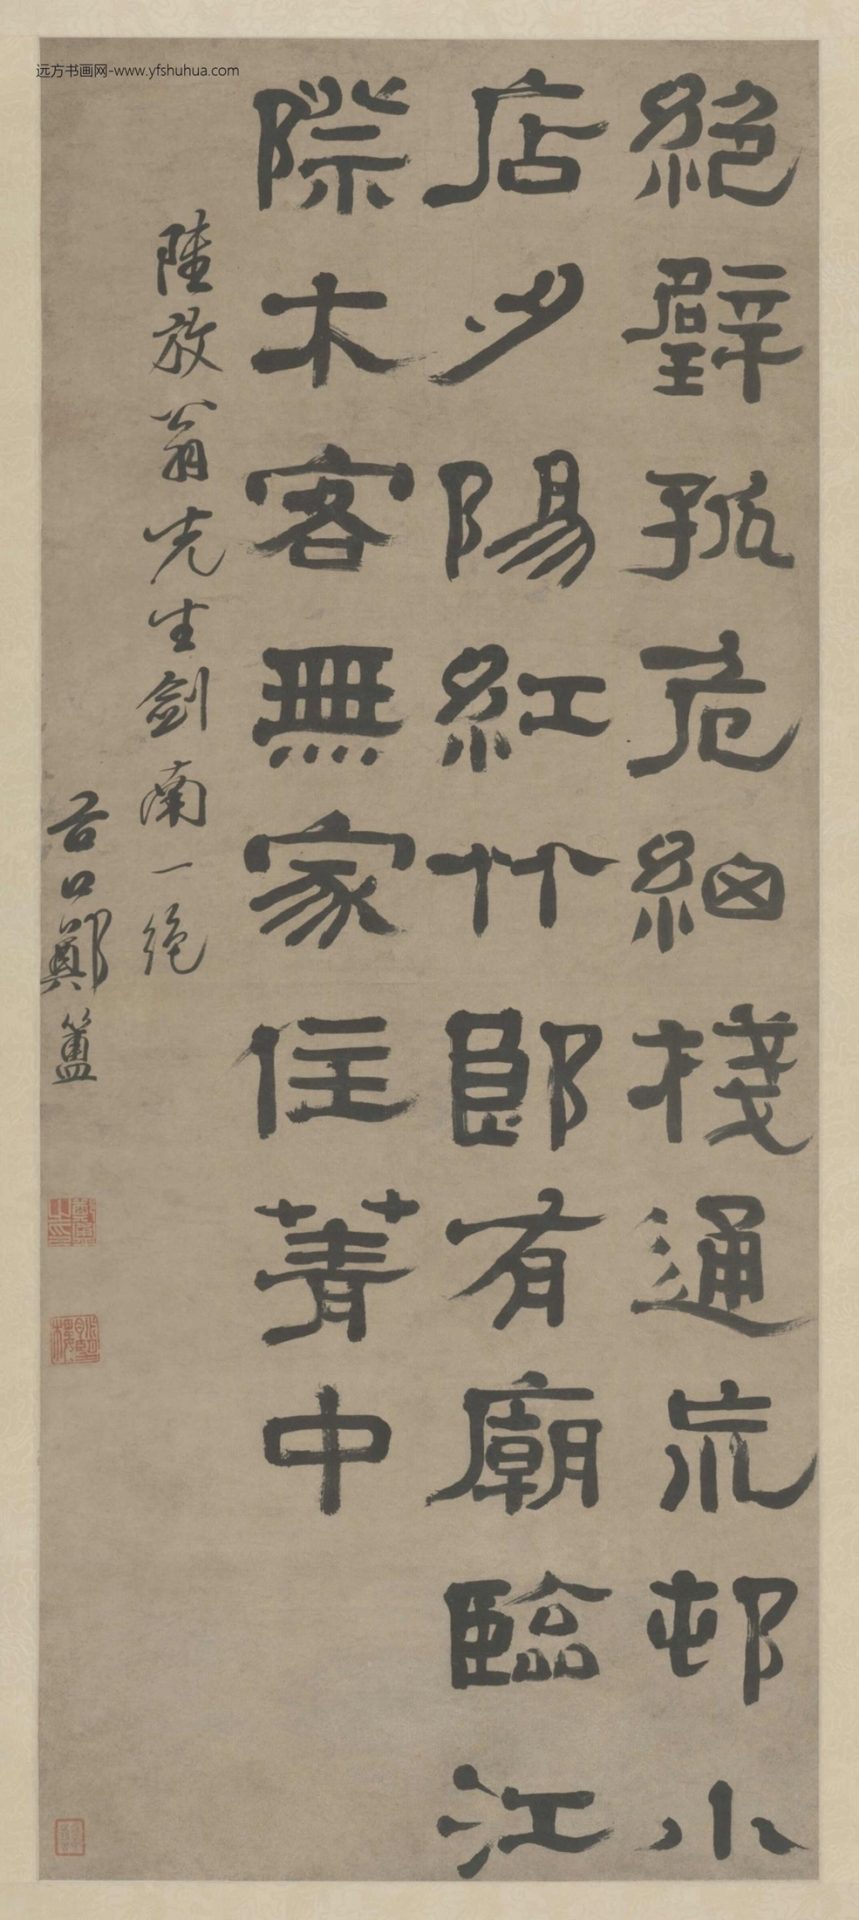 远方书画网-www.yfshuhua.com
絕壁孤危細棧通巟邨小
店夕陽紅竹郎有廟臨江
際木客無家住菁中
陸放翁先生劍南一絕
谷口鄭簠